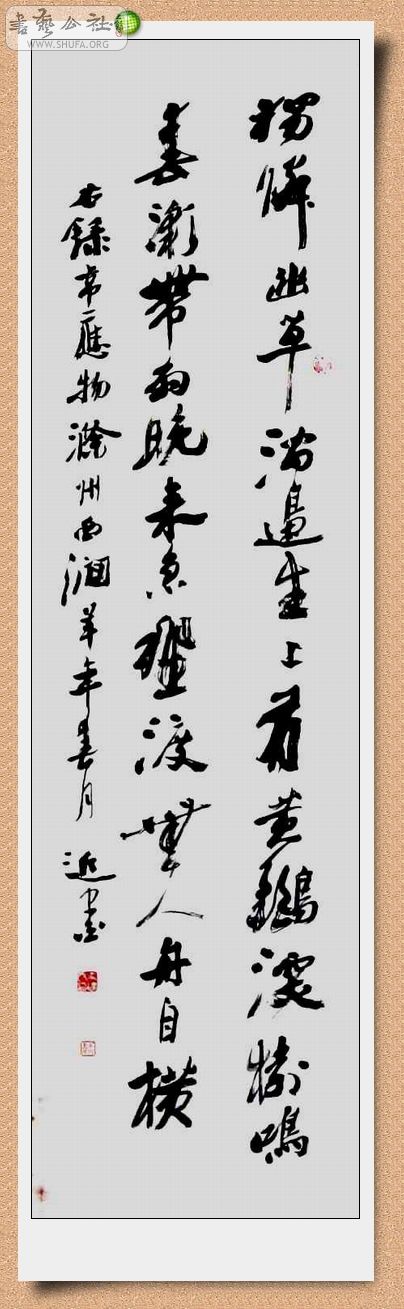 書藝公社
WWW.SHUFA.ORG
獨憐幽草澗邊生上有黄鸝深樹鳴
春潮帶雨晚来急壄渡無人舟自横
右録韋應物滁州西澗羊年春月書